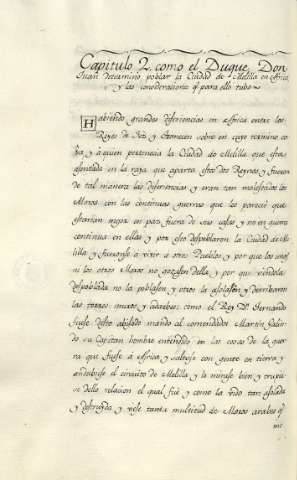 Capitulo 2. como el Duque Don
Juan determino poblar la Ciudad de Melilla en Africa
y las consideraciones q̃ para ello tubo
Habiendo grandes diferencias en Africa entre los
Reyes de Fez y Tremecen sobre en cuyo termino ca
ya, y a quien pertenecia la Ciudad de Melilla que esta
asentada en la raya que aparta estos dos Reynos, y fueron
de tal manera las diferencias y eran tan molestados los
Moros con las continuas guerras que les parecio que
estarian mejor en paz fuera de sus casas y no en guerra
continua en ellas y por esto despoblaron la Ciudad de Me
lilla y fueronse a vivir a otros Pueblos y por que los unos
ni los otros Moros no gozasen della, y por que viendola
despoblada no la poblasen y otros la asolasen y derribaron
las torres muros y adarbes: como el Rey Dn. Fernando
fuese desto abisado mando al comendador Martin Galin
do su Capitan hombre entendido en las cosas de la gue
rra que fuese a Africa y saltase con gente en tierra y
andubiese el circuito de Melilla y la mirase bien y truxe
se dello relacion el qual fué y como la vido tan asolada
y destruida y viese tanta multitud de Moros arabes q̃